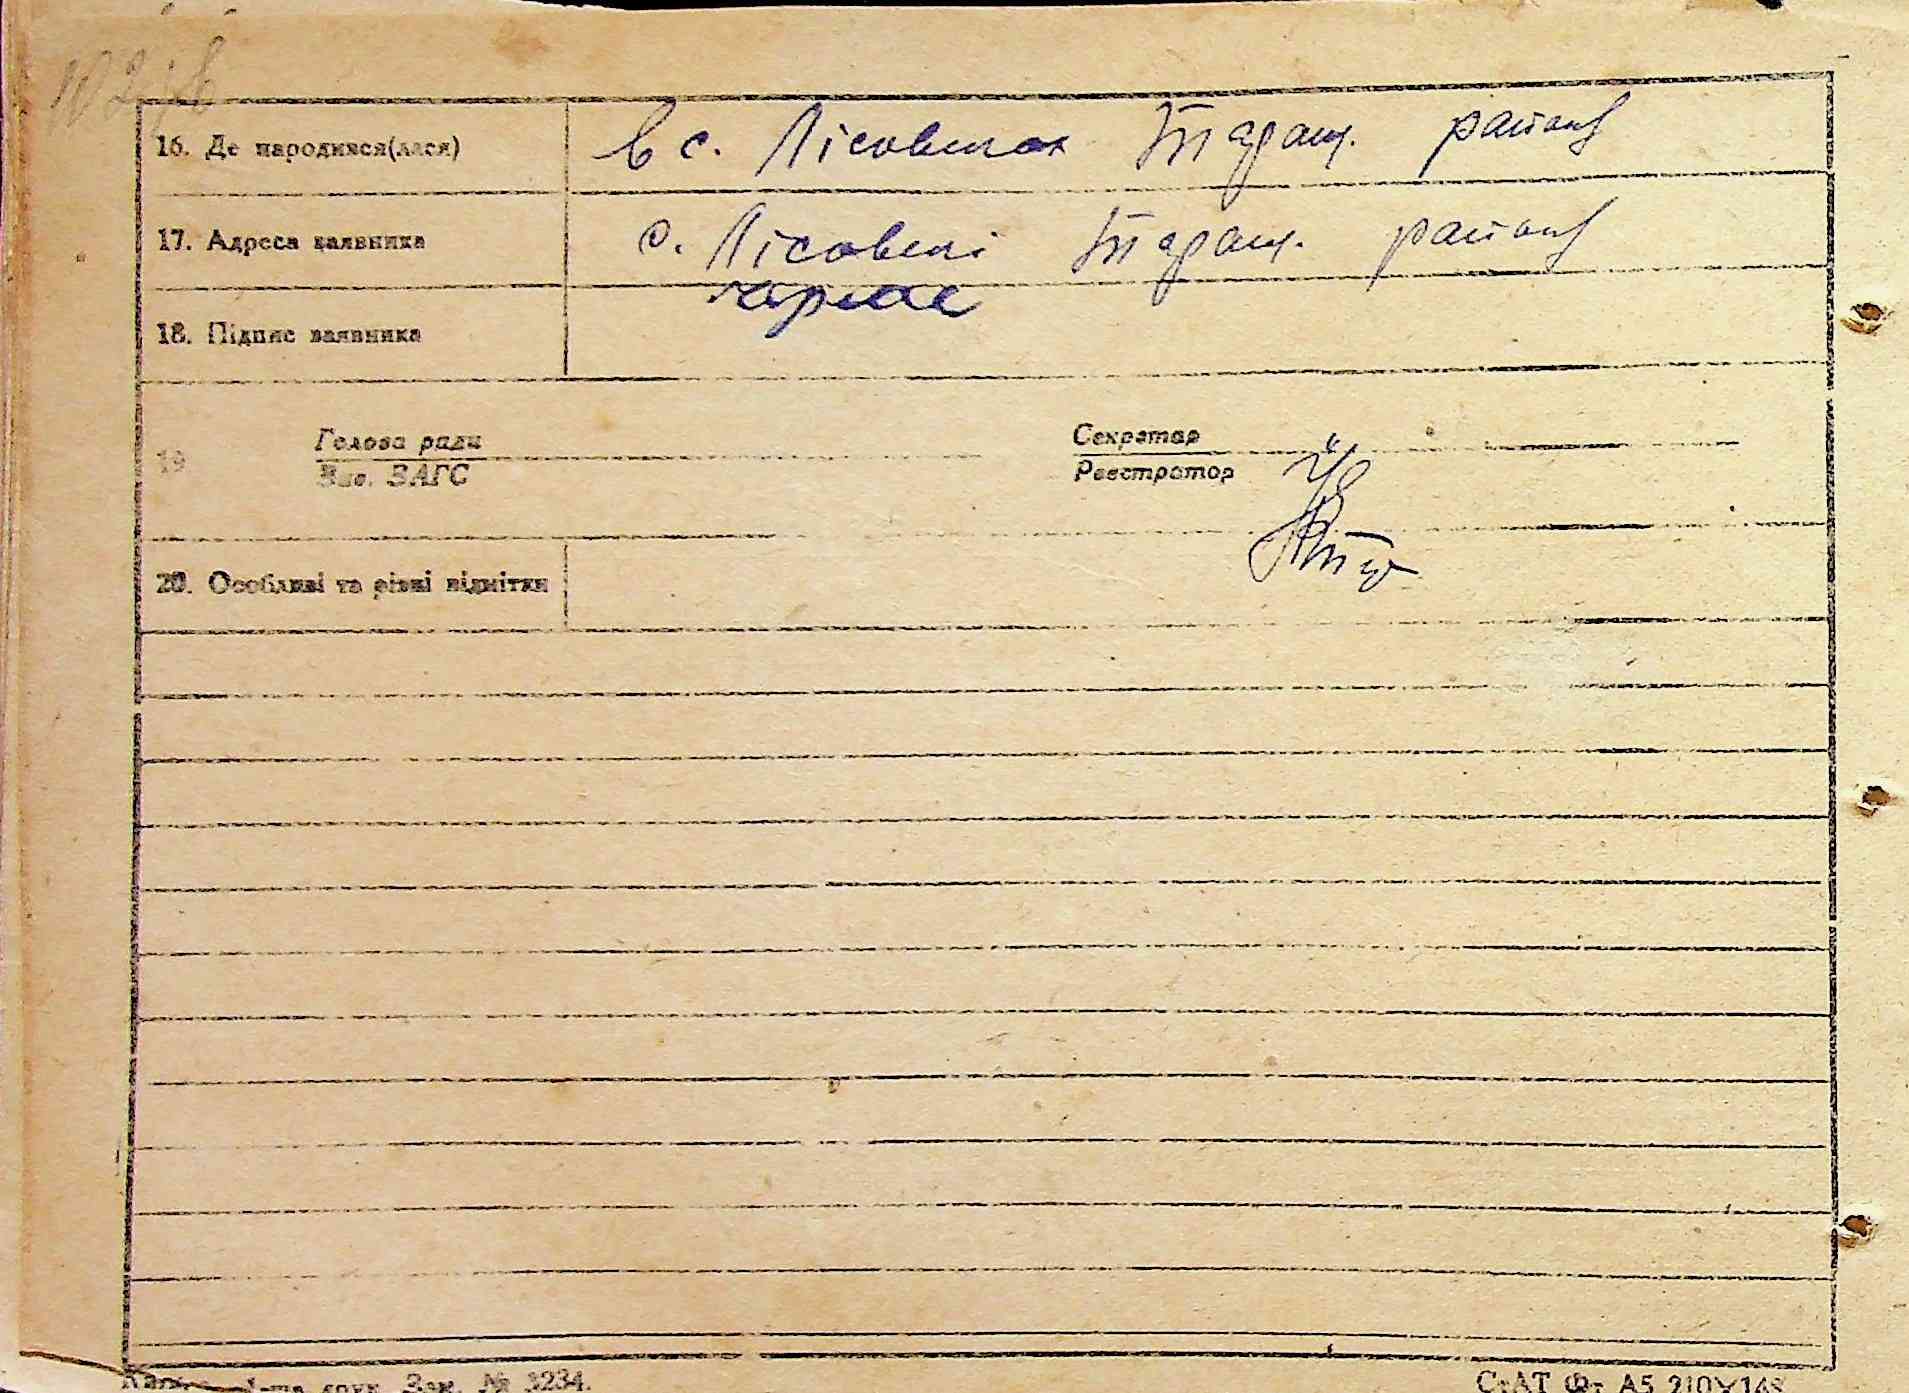 16. Де народився(лася) в с. Лісовичах Таращ. району
17. Адреса заявника с. Лісовичі Таращ. району
18. Підпис заявника
19 Голова ради Секретар
Зав. ЗАГС Реєстратор
20. Особливі та різні відмітки
друк. Зам. № 3234. А5 210×148